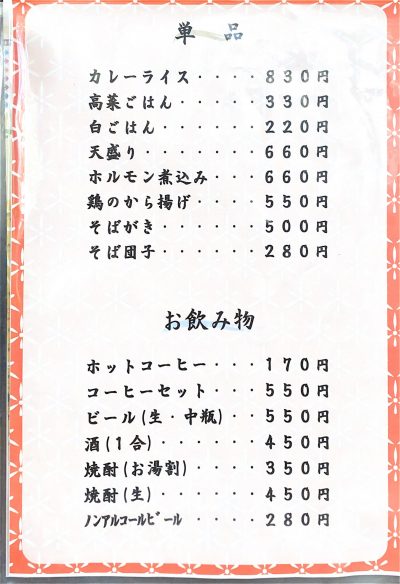 単品
カレーライス・・・・830円
高菜ごはん・・・・・330円
白ごはん・・・・・・220円
天盛り・・・・・・・660円
ホルモン煮込み・・・660円
鶏のから揚げ・・・・550円
そばがき・・・・・・500円
そば団子・・・・・・280円
お飲み物
ホットコーヒー・・・170円
コーヒーセット・・・550円
ビール(生・中瓶)・・550円
酒(1合)・・・・・・450円
焼酎(お湯割)・・・・350円
焼酎(生)・・・・・・450円
ノンアルコールビール・・・・・280円